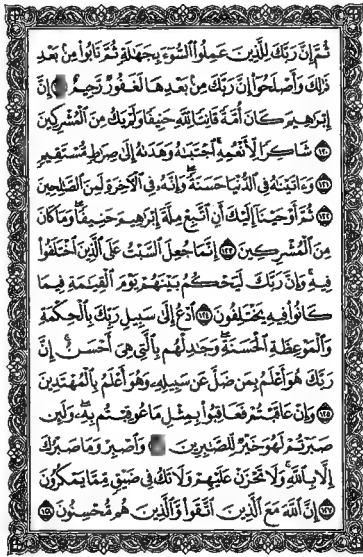 ثُمَّ إِنَّ رَبَّكَ لِلَّذِينَ عَمِلُوا۟ ٱلسُّوٓءَ بِجَهَٰلَةٍ ثُمَّ تَابُوا۟ مِنۢ بَعْدِ
ذَٰلِكَ وَأَصْلَحُوٓا۟ إِنَّ رَبَّكَ مِنۢ بَعْدِهَا لَغَفُورٌ رَّحِيمٌ إِنَّ
إِبْرَٰهِيمَ كَانَ أُمَّةً قَانِتًا لِّلَّهِ حَنِيفًا وَلَمْ يَكُ مِنَ ٱلْمُشْرِكِينَ
١٢٠ شَاكِرًا لِّأَنْعُمِهِ ۚ ٱجْتَبَىٰهُ وَهَدَىٰهُ إِلَىٰ صِرَٰطٍ مُّسْتَقِيمٍ
١٢١ وَءَاتَيْنَٰهُ فِى ٱلدُّنْيَا حَسَنَةً ۖ وَإِنَّهُۥ فِى ٱلْءَاخِرَةِ لَمِنَ ٱلصَّٰلِحِينَ
١٢٢ ثُمَّ أَوْحَيْنَآ إِلَيْكَ أَنِ ٱتَّبِعْ مِلَّةَ إِبْرَٰهِيمَ حَنِيفًا ۖ وَمَا كَانَ
مِنَ ٱلْمُشْرِكِينَ ١٢٣ إِنَّمَا جُعِلَ ٱلسَّبْتُ عَلَى ٱلَّذِينَ ٱخْتَلَفُوا۟
فِيهِ ۚ وَإِنَّ رَبَّكَ لَيَحْكُمُ بَيْنَهُمْ يَوْمَ ٱلْقِيَٰمَةِ فِيمَا
كَانُوا۟ فِيهِ يَخْتَلِفُونَ ١٢٤ ٱدْعُ إِلَىٰ سَبِيلِ رَبِّكَ بِٱلْحِكْمَةِ
وَٱلْمَوْعِظَةِ ٱلْحَسَنَةِ ۖ وَجَٰدِلْهُم بِٱلَّتِى هِىَ أَحْسَنُ ۚ إِنَّ
رَبَّكَ هُوَ أَعْلَمُ بِمَن ضَلَّ عَن سَبِيلِهِۦ ۖ وَهُوَ أَعْلَمُ بِٱلْمُهْتَدِينَ
١٢٥ وَإِنْ عَاقَبْتُمْ فَعَاقِبُوا۟ بِمِثْلِ مَا عُوقِبْتُم بِهِۦ ۖ وَلَئِن
صَبَرْتُمْ لَهُوَ خَيْرٌ لِّلصَّٰبِرِينَ وَٱصْبِرْ وَمَا صَبْرُكَ
إِلَّا بِٱللَّهِ ۚ وَلَا تَحْزَنْ عَلَيْهِمْ وَلَا تَكُ فِى ضَيْقٍ مِّمَّا يَمْكُرُونَ
١٢٧ إِنَّ ٱللَّهَ مَعَ ٱلَّذِينَ ٱتَّقَوا۟ وَّٱلَّذِينَ هُم مُّحْسِنُونَ